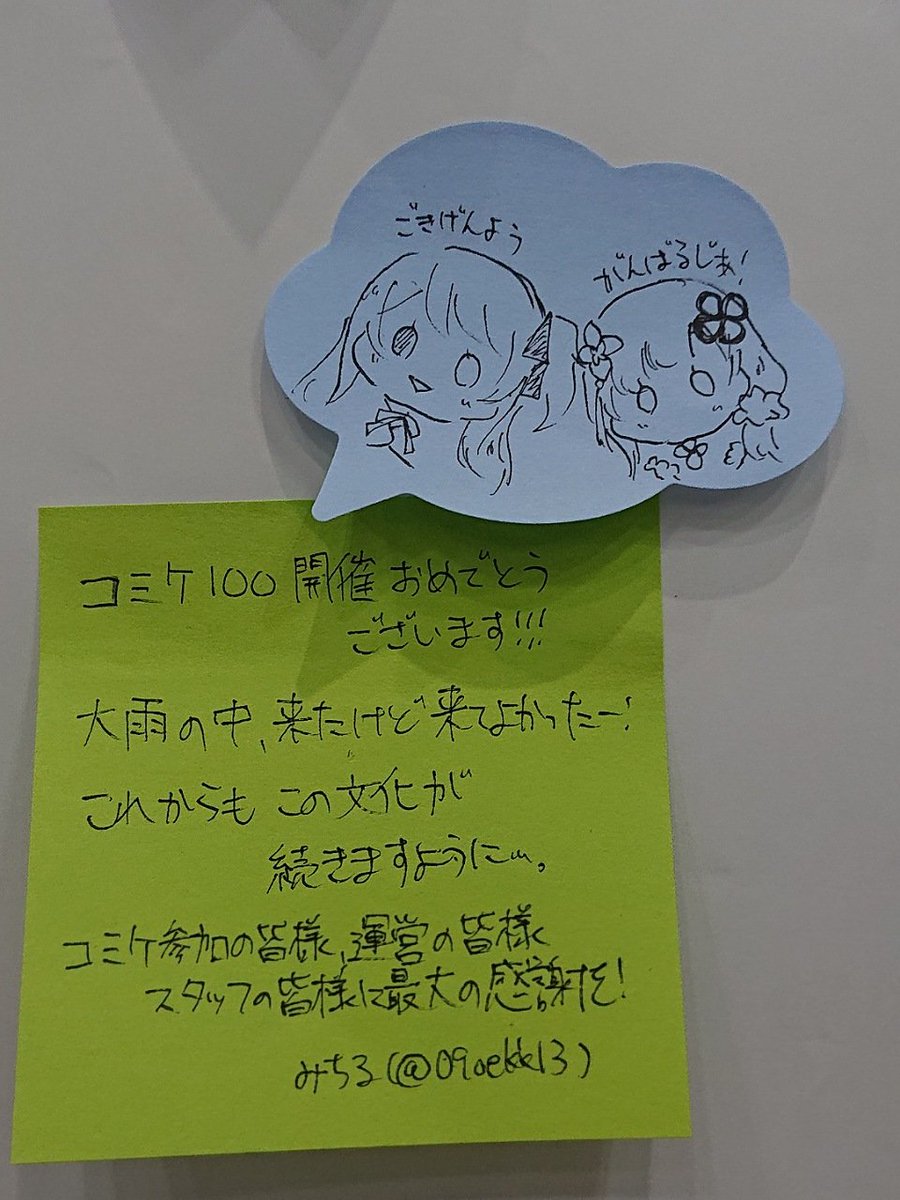 ごきげんよう
がんばるじぁ!
コミケ100 開催おめでとう
ございます!!!
大雨の中、来たけど来てよかったー!
これからも この文化が
続きますように…。
コミケ参加の皆様、運営の皆様
スタッフの皆様に最大の感謝を!
みちる(@09oekk13)